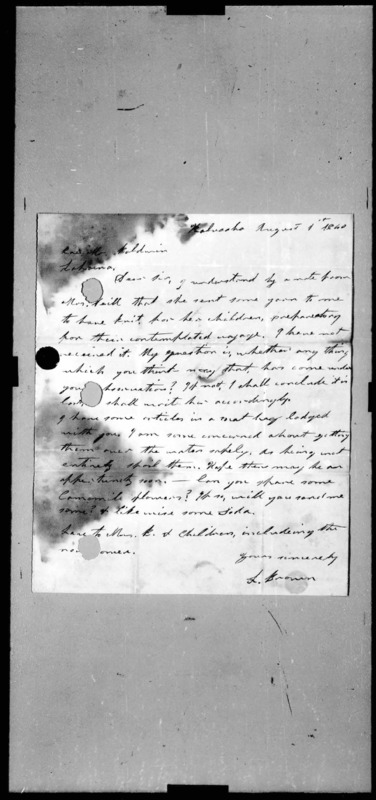 Kaluaaha August 1st 1840
Baldwin
Lahaina,
Dear Sir, I understand by a note from
Mrs. that she sent some yarn to me
to have knit, for her children, preparatory
for their contemplated voyage. I have not
received it. My question is, whether any thing
which you think may that has come under
your observation? If not, I shall conclude it is
lost shall write her accordingly.
I have some articles in a mat bag lodged
with you I am some concerned about getting
them over the water safely, as being wet
entirely spoil them. Hope there may be an
opportunity soon. — Can you spare some
Camomile flowers? If so, will you send me
some? & likewise some Soda.
Love to Mrs. B. & Children, includeing the
new comer.
Yours sincerely
L. Brown